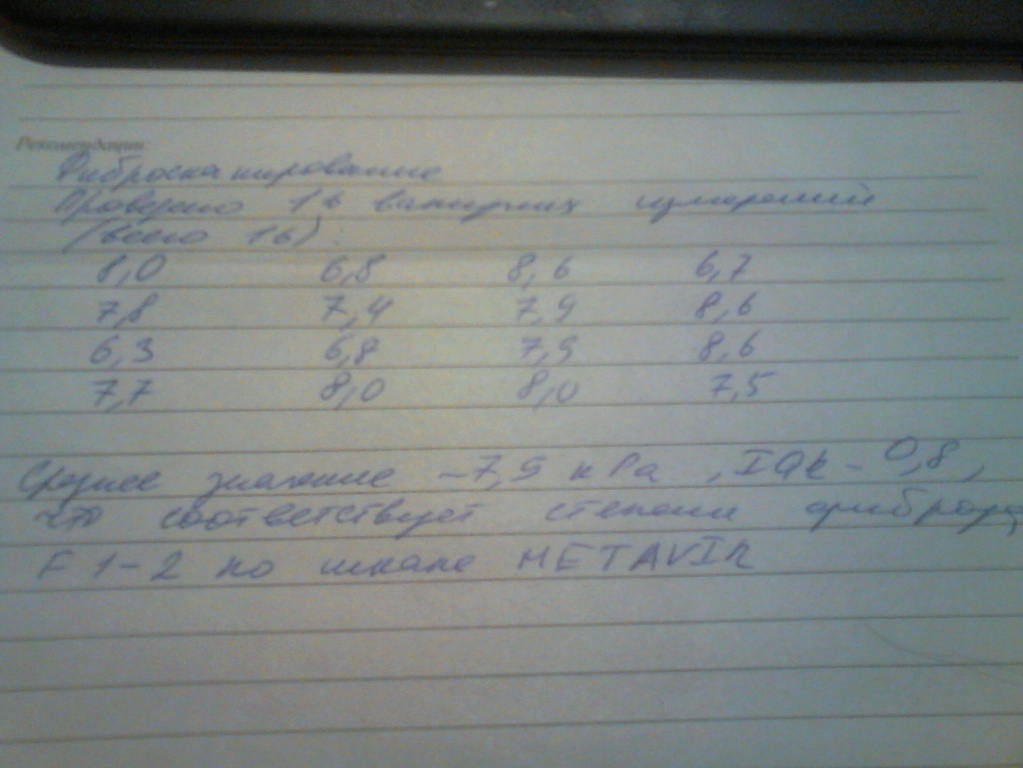 Рекомендации:
Фибросканирование
Проведено 16 валидных измерений
(всего 16):
8,0 6,8 8,6 6,7
7,8 7,4 7,9 8,6
6,3 6,8 7,9 8,6
7,7 8,0 8,0 7,5
Среднее значение – 7,9 кPa, IQR – 0,8,
что соответствует степени фиброза
F 1-2 по шкале METAVIR